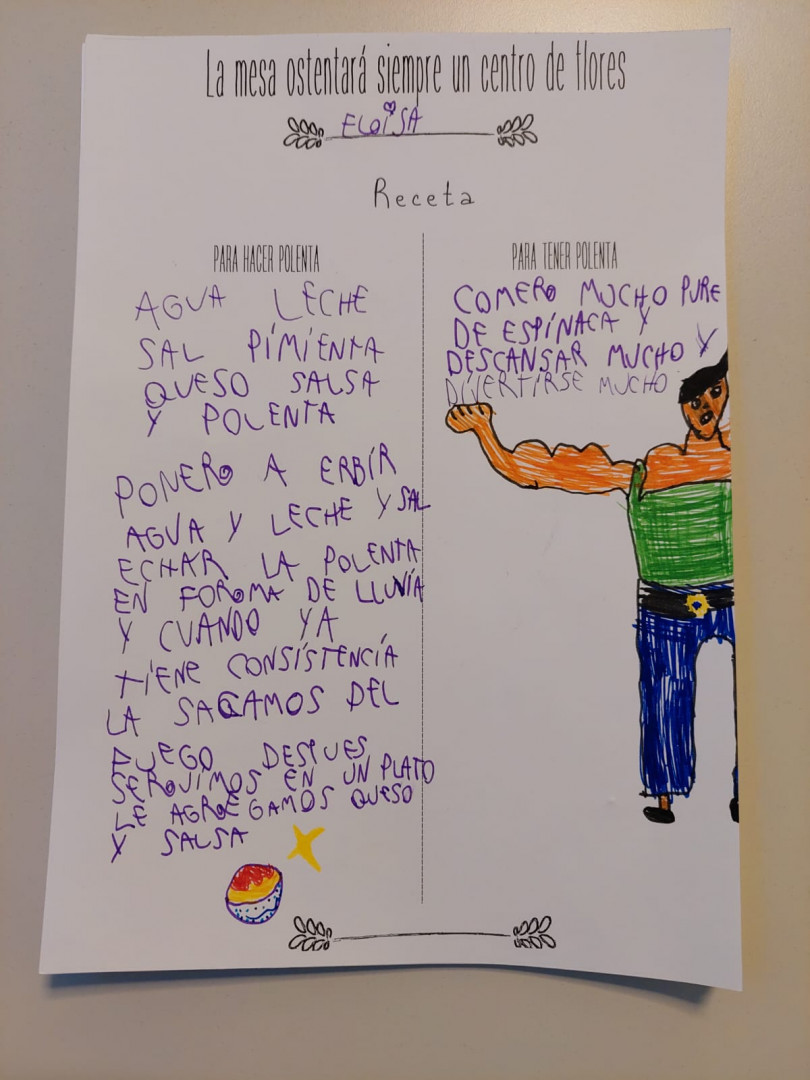 La mesa ostentará siempre un centro de flores
ELOiSA
Receta
PARA HACER POLENTA
AGUA LECHE
SAL PiMiENTA
QUESO SALSA
Y POLENTA
PONERO A ERBiR
AGUA Y LECHE Y SAL
ECHAR LA POLENTA
EN FOROMA DE LLUViA
Y CUANDO YA
TiENE CONSiSTENCiA
LA SACAMOS DEL
FUEGO DESPUES
SEROJiMOS EN UN PLATO
LE AGREGAMOS QUESO
Y SALSA
PARA TENER POLENTA
COMERO MUCHO PURE
DE ESPiNACA Y
DESCANSAR MUCHO Y
DiVERTiRSE MUCHO